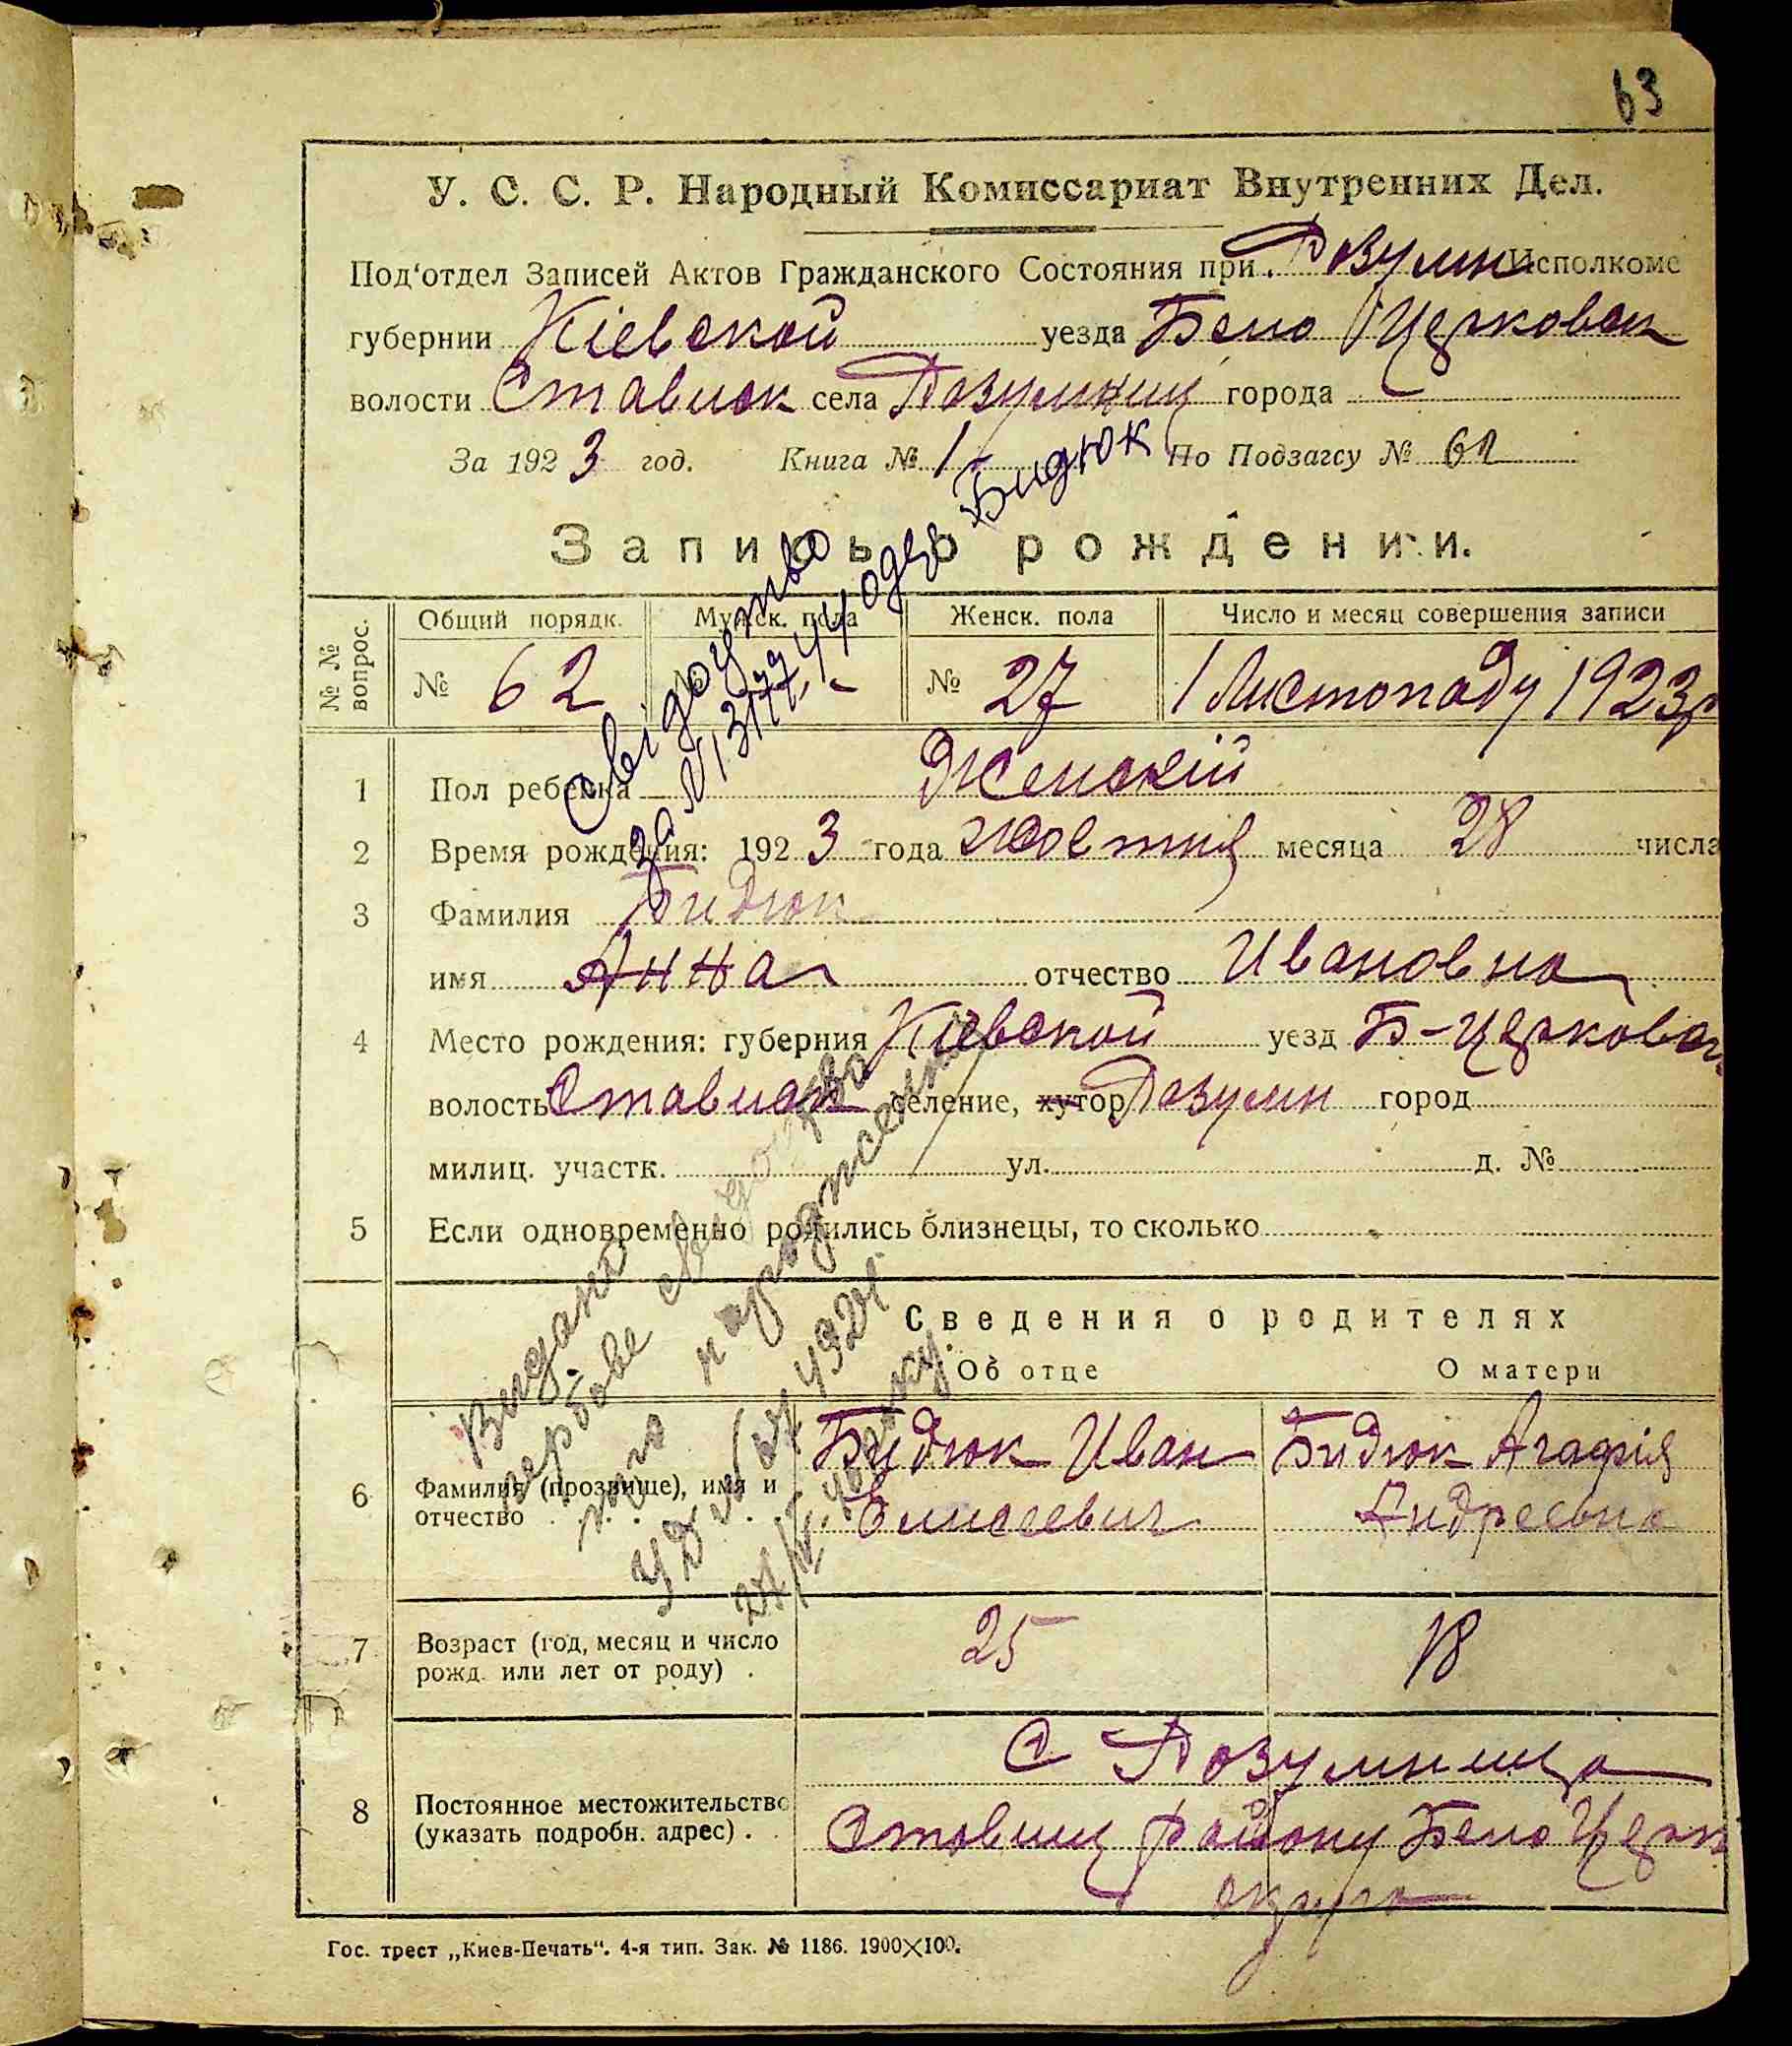 63
У. С. С. Р. Народный Комиссариат Внутренних Дел.
Под'отдел Записей Актов Гражданского Состояния при Розумн Исполкоме
губернии Кіевской уезда Бело Церковск
волости Стависк села Розумниц города
За 1923 год. Книга № 1 По Подзагсу № 62
Запись о рождении.
№№ вопрос.
Общий порядк. Мужск. пола Женск. пола Число и месяц совершения записи
№ 62 № 27 1 Листопаду 1923р
Свідоутво
за № 13177 одер Бидюк
1 Пол ребенка Женскій
2 Время рождения: 1923 года Жовтня месяца 28 числа
3 Фамилия Бидюк
имя Анна отчество Ивановна
4 Место рождения: губерния Кіевской уезд Б-Церковск
волость Стависк селение, хутор Розумн город
милиц. участк. ул. д. №
5 Если одновременно родились близнецы, то сколько
Сведения о родителях
Об отце О матери
Видано
свідоцтво
про народження
6 Фамилия (прозвище), имя и отчество Бидюк Иван Елисеевич Бидюк Агафія Андреевна
7 Возраст (год, месяц и число рожд. или лет от роду) . 25 18
8 Постоянное местожительство (указать подробн. адрес) .
С Розумница
Ставищ району Бело Церк
округа
Гос. трест „Киев-Печать“. 4-я тип. Зак. № 1186. 1900×100.